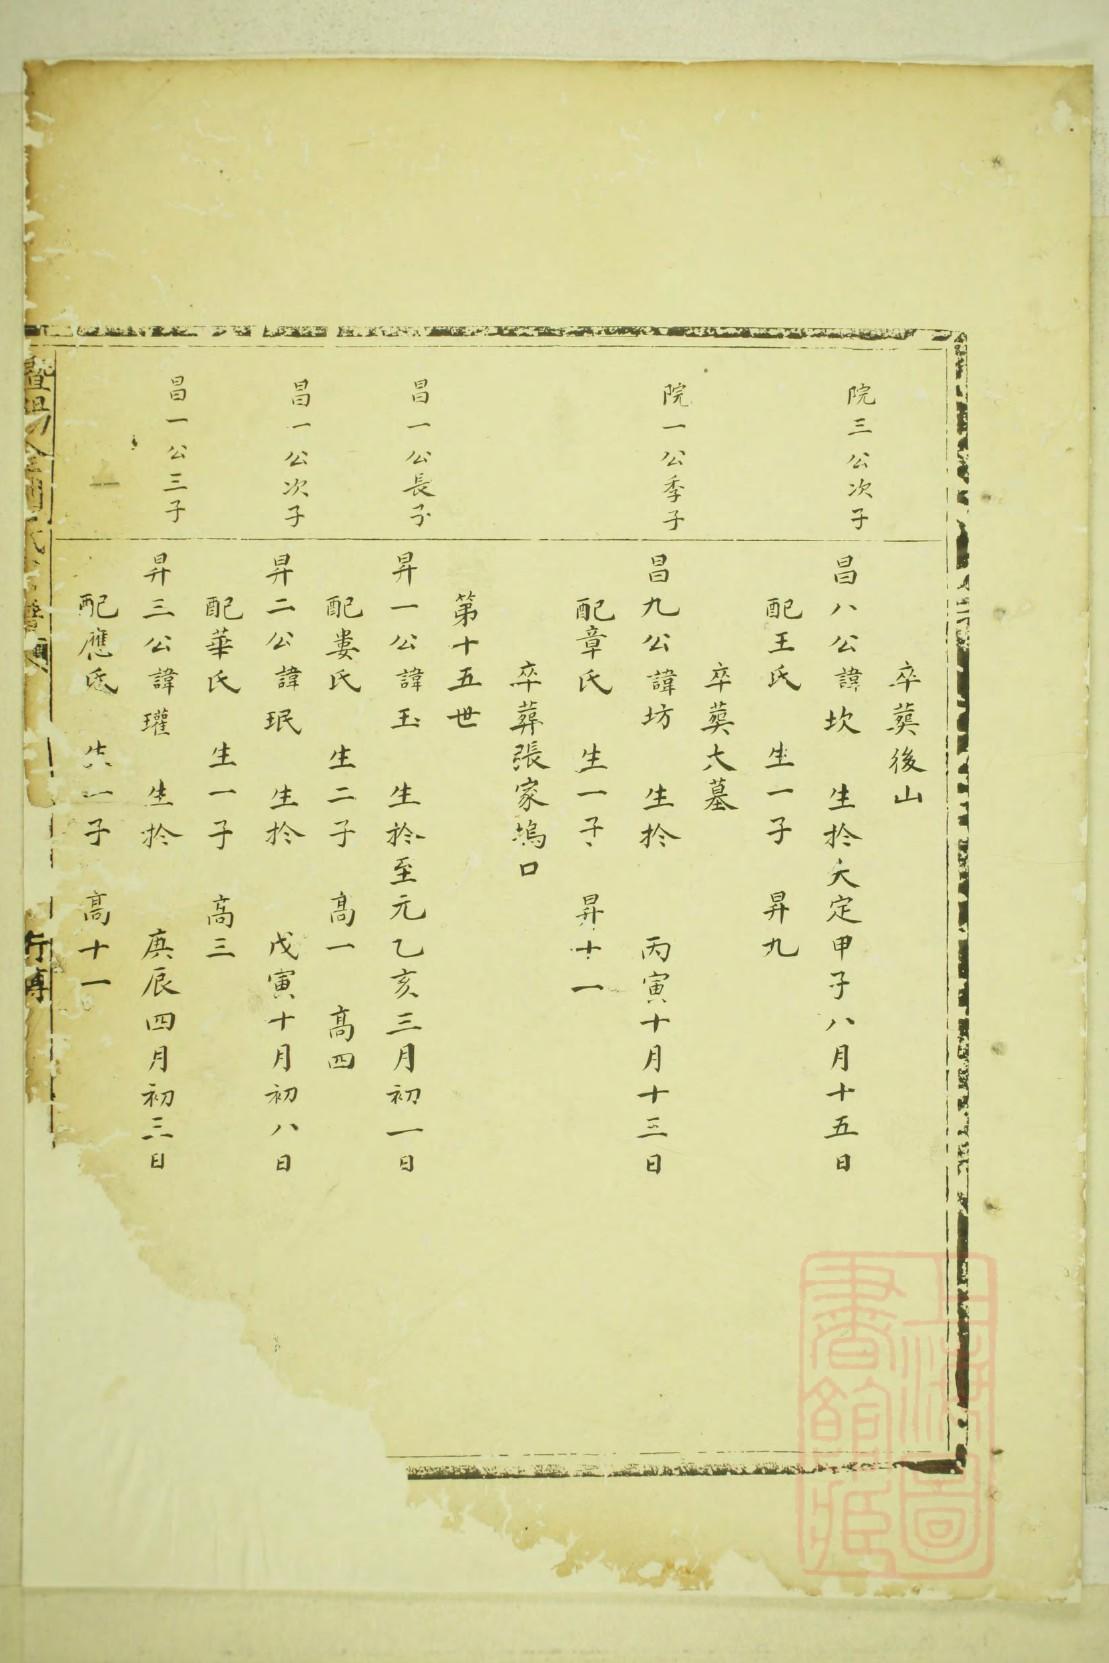 卒葬後山
院三公次子
昌八公諱坎 生於大定甲子八月十五日
配王氏 生一子 昇九
卒葬大墓
院一公季子
昌九公諱坊 生於 丙寅十月十三日
配章氏 生一子 昇十一
卒葬張家塢口
第十五世
昌一公長子
昇一公諱玉 生於至元乙亥三月初一日
配婁氏 生二子 高一 高四
昌一公次子
昇二公諱珉 生於 戊寅十月初八日
配華氏 生一子 高三
昌一公三子
昇三公諱瓘 生於 庚辰四月初三日
配應氏 生一子 高十一
暨陽 氏 譜 行傳
上海圖書館藏